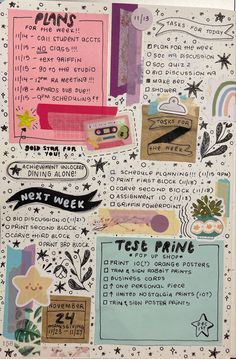 PLANS
FOR THE WEEK!!
11/14 - CALL STUDENT ACCTS
11/15 - NO CLASS!!!
11/16 - TEXT GRIFFIN
11/15 - GO TO THE STUDIO
11/14 - 12PM RA MEETING!!!
11/18 - APARDS SUB DUE!!
11/15 - 9PM SCHEDULING!!
11/13
TASKS FOR TODAY
PLAN FOR THE WEEK
SOC WK 9
SOC QUIZ
BIO DISCUSSION
BIO WK
MAKE BED
SHOWER
TASKS FOR
THE WEEK
BOLD STAR FOR
YOU!
ACHIEVEMENT UNLOCKED
DINING ALONE!
NEXT WEEK
BIO DISCUSSION 10
PRINT SECOND BLOCK
CARVE THIRD BLOCK
PRINT 3RD BLOCK
SCHEDULE PLANNING!!!
PRINT FIRST BLOCK (11/18)
CARVE SECOND BLOCK
ASSIGNMENT 10
GRIFFIN POWERPOINT
TEST PRINT
POP UP SHOP
PRINT 10(?) ORANGE POSTERS
TRIM & SIGN RABBIT PRINTS
BUSINESS CARDS
ONE PERSONAL PIECE
UNITED NOSTALGIA PRINTS (10?)
TRIM & SIGN POSTER PRINTS
NOVEMBER
24
11/27
DEC
158